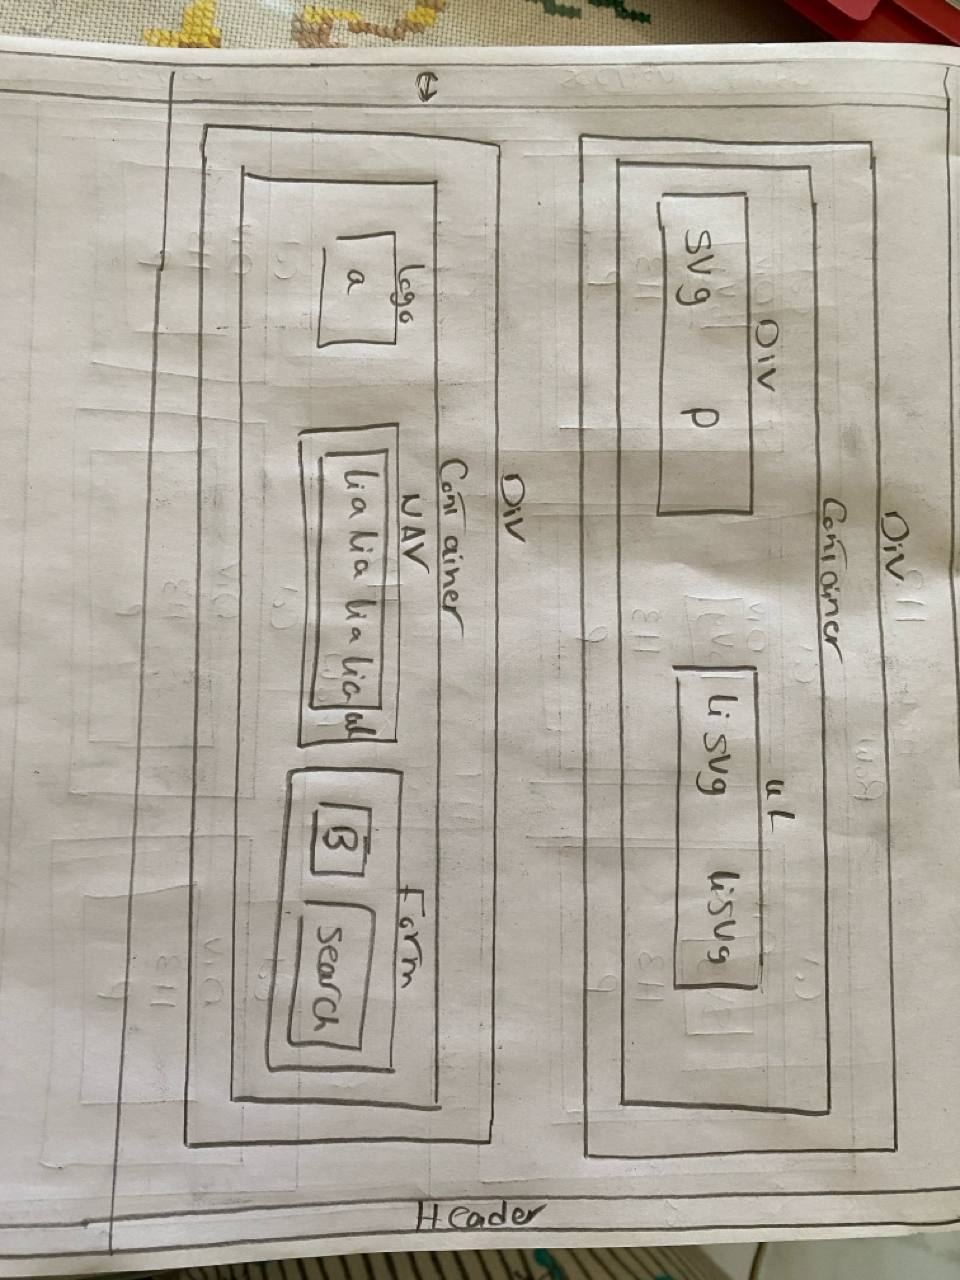 Div
Container
Div
ul
svg p
li svg li svg
Div
Container
Logo
NAV
Form
a
li a li a li a li a ul
B
search
Header